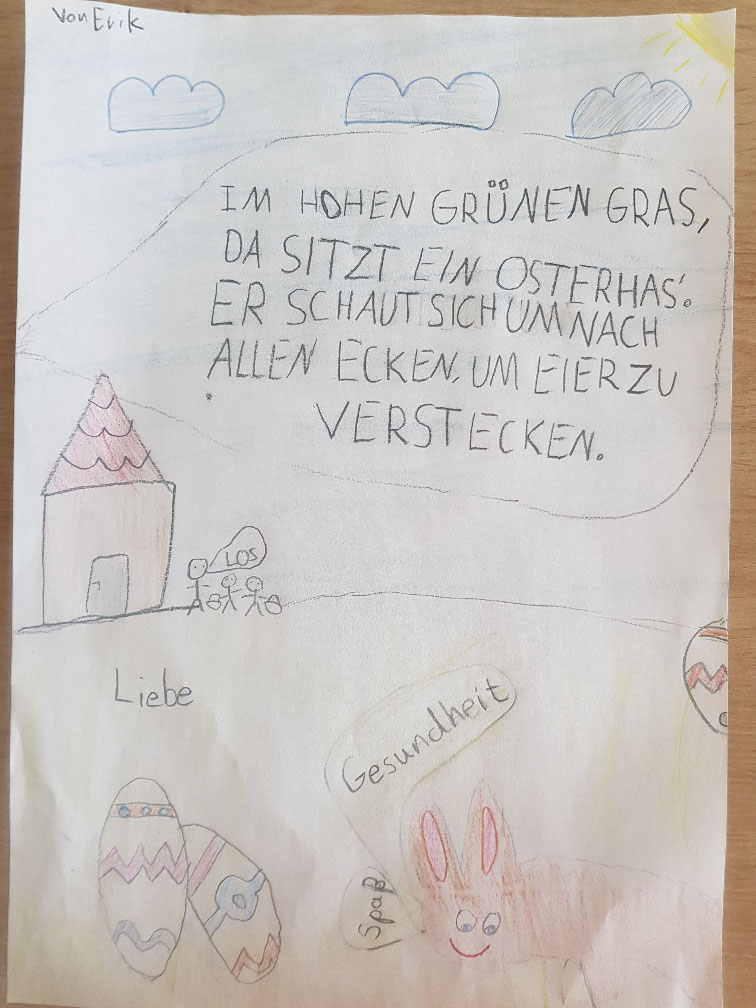 Von Erik
IM HOHEN GRÜNEN GRAS,
DA SITZT EIN OSTERHAS'.
ER SCHAUT SICH UM NACH
ALLEN ECKEN, UM EIER ZU
VERSTECKEN.
LOS
Liebe
Gesundheit
Spaß